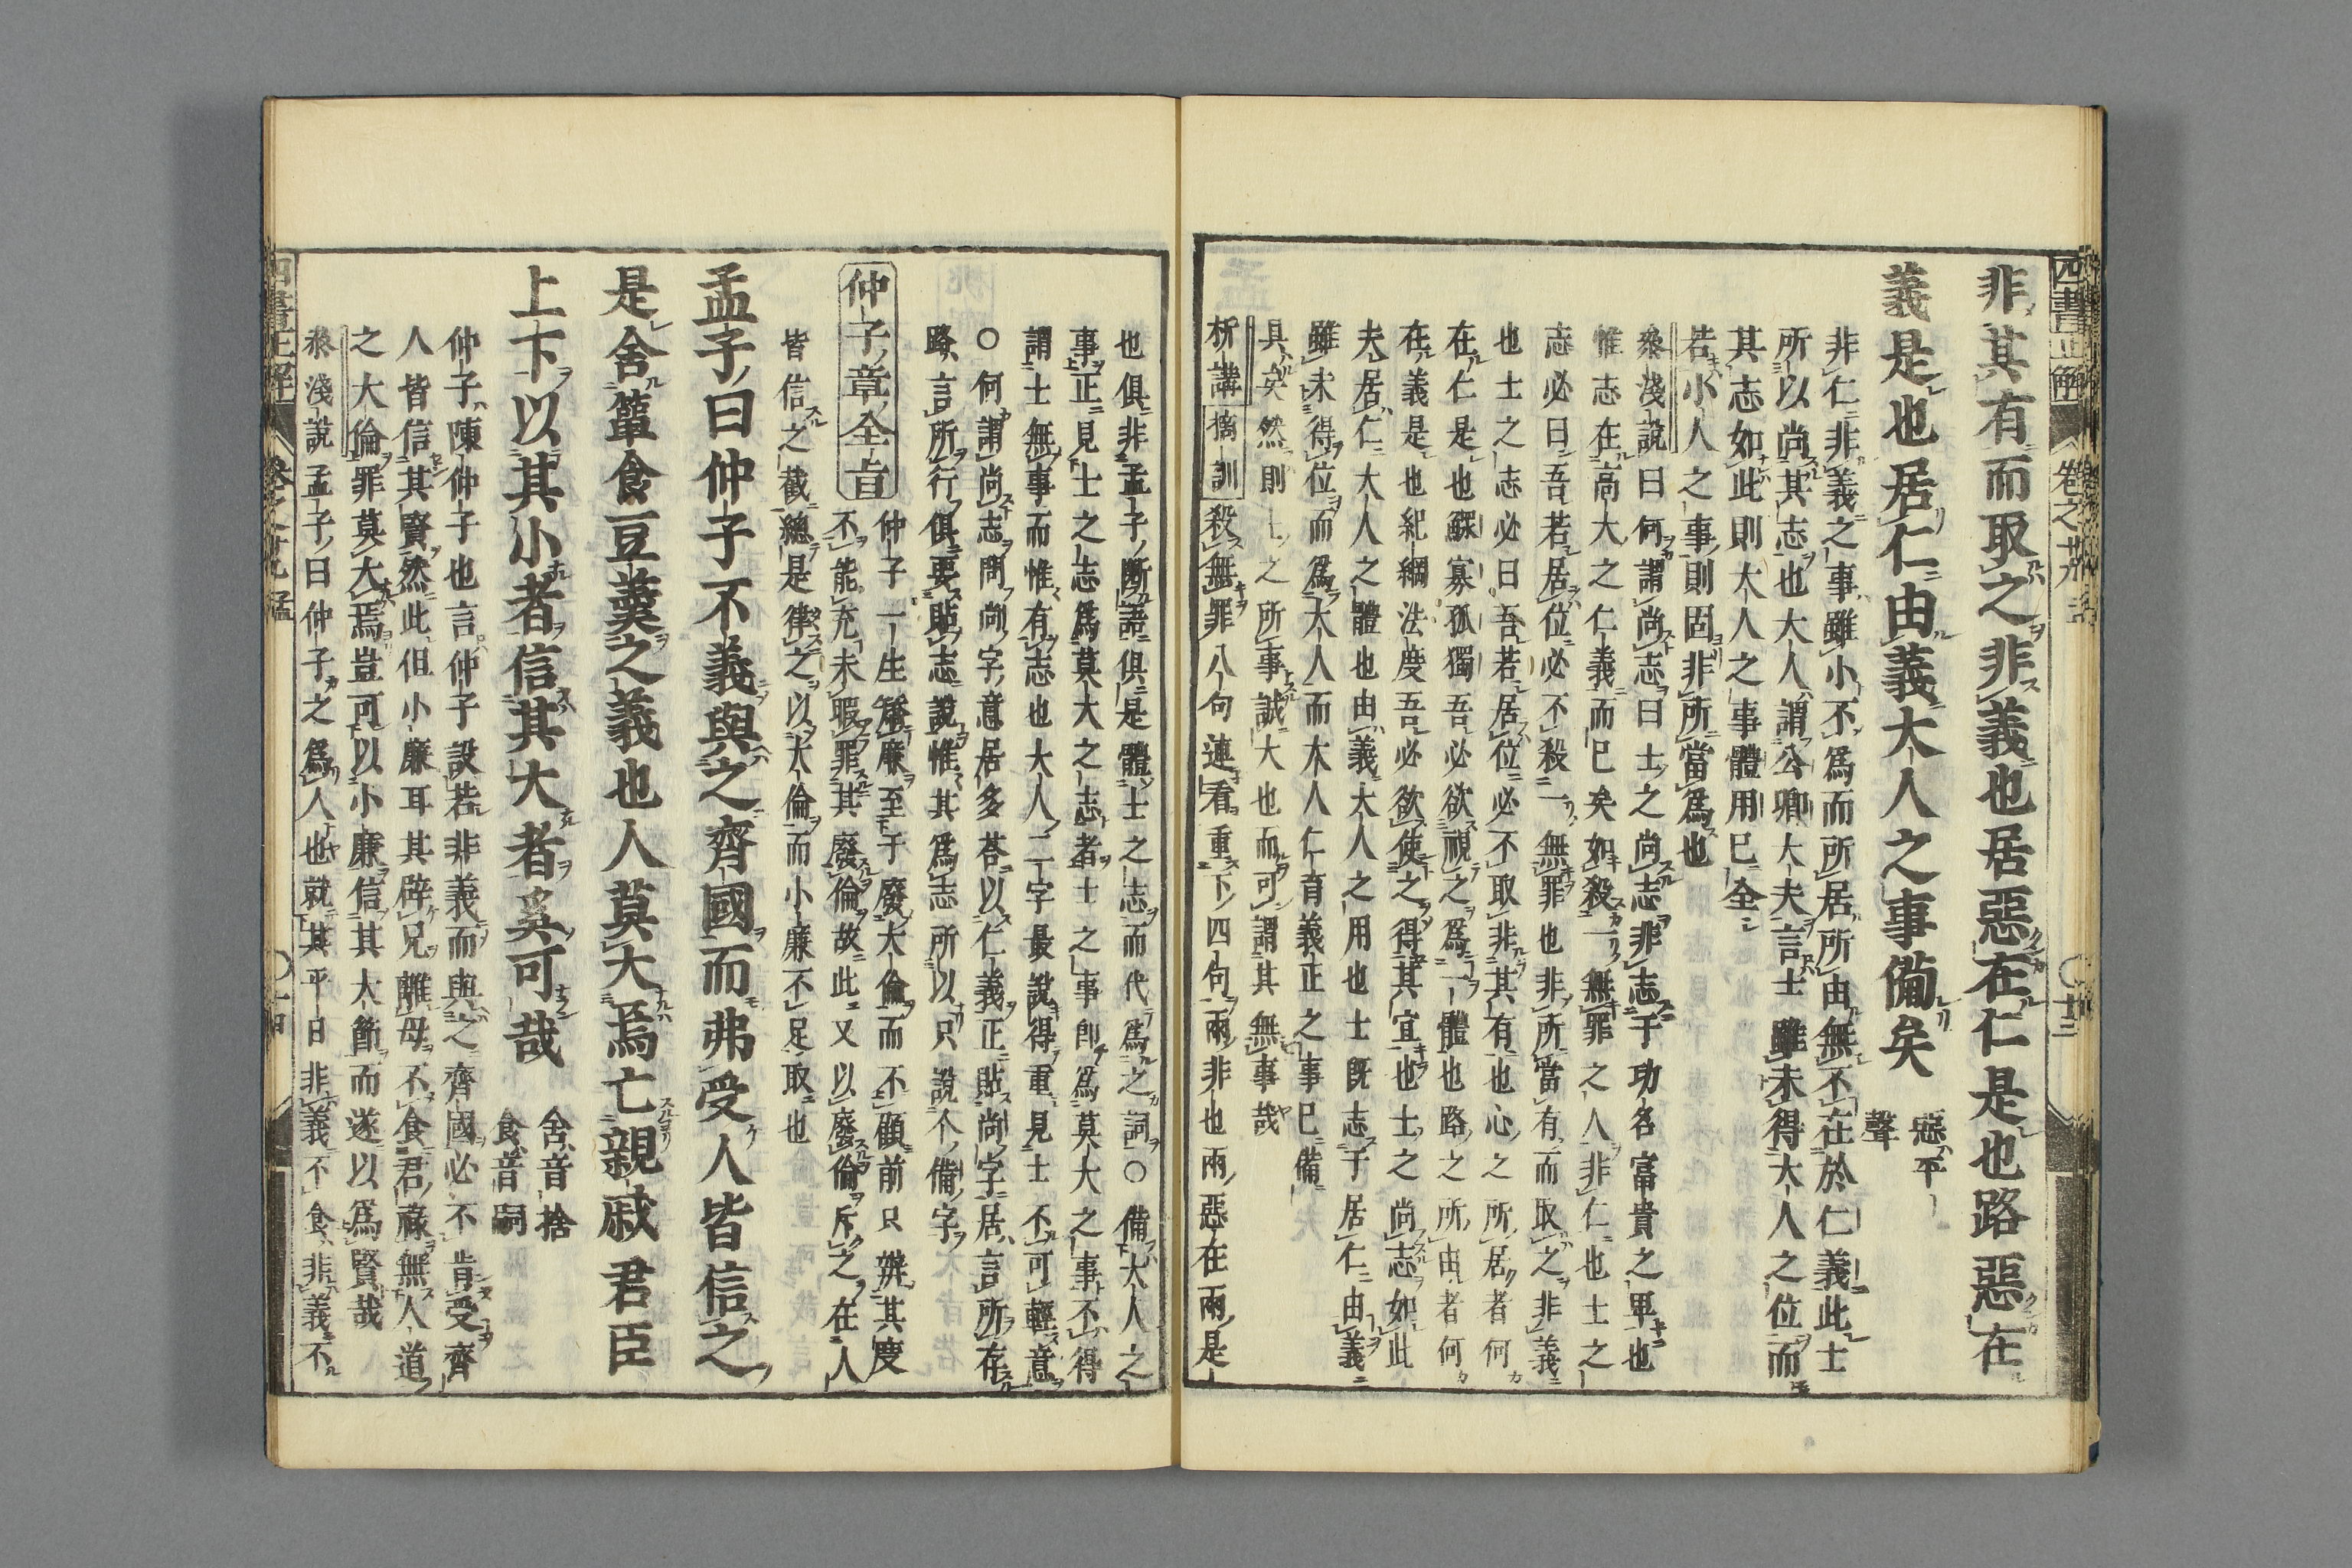 四書正解 卷之廿九 孟 十三
非其有而取之非義也居惡在仁是也路惡在
義是也居仁由義大人之事備矣
惡平
聲
非仁非義之事雖小不爲而所居所由無不在於仁義此士
所以尚其志也大人謂公卿大夫言士雖未得大人之位而
其志如此則大人之事體用已全
若小人之事則固非所當爲也
淺說曰何謂尚志曰士之尚志非志于功名富貴之卑也
惟志在高大之仁義而已矣如殺一無罪之人非仁也士之
志必曰吾若居位必不殺一無罪也非所當有而取之非義
也士之志必曰吾若居位必不取非其有也心之所居者何
在仁是也鰥寡孤獨吾必欲視之爲一體也路之所由者何
在義是也紀綱法度吾必欲使之得其宜也士之尚志如此
夫居仁大人之體也由義大人之用也士既志于居仁由義
雖未得位而爲大人而大人仁育義正之事已備
具矣然則士之所事誠大也而可謂其無事哉
析講 摘訓 殺無罪八句連看重下四句兩非也兩惡在兩是
也俱非孟子斷語俱是體士之志而代爲之詞○備大人之
事正見士之志爲莫大之志者士之事卽爲莫大之事不得
謂士無事而惟有志也大人二字最說得重見士不可輕意
○何謂尚志問尚字意居多荅以仁義正貼尚字居言所存
路言所行俱要貼志說惟其爲志所以只說个備字
仲子章全旨
仲子一生矯廉至于廢大倫而不顧前只辨其度
不能充未暇罪其廢倫故此又以廢倫斥之在人
皆信之截總是律之以大倫而小廉不足取也
孟子曰仲子不義與之齊國而弗受人皆信之
是舍簞食豆羹之義也人莫大焉亡親戚君臣
上下以其小者信其大者奚可哉
舍音捨
食音嗣
仲子陳仲子也言仲子設若非義而與之齊國必不肯受齊
人皆信其賢然此但小廉耳其辟兄離母不食君祿無人道
之大倫罪莫大焉豈可以小廉信其大節而遂以爲賢哉
淺說孟子曰仲子之爲人也就其平日非義不食非義不